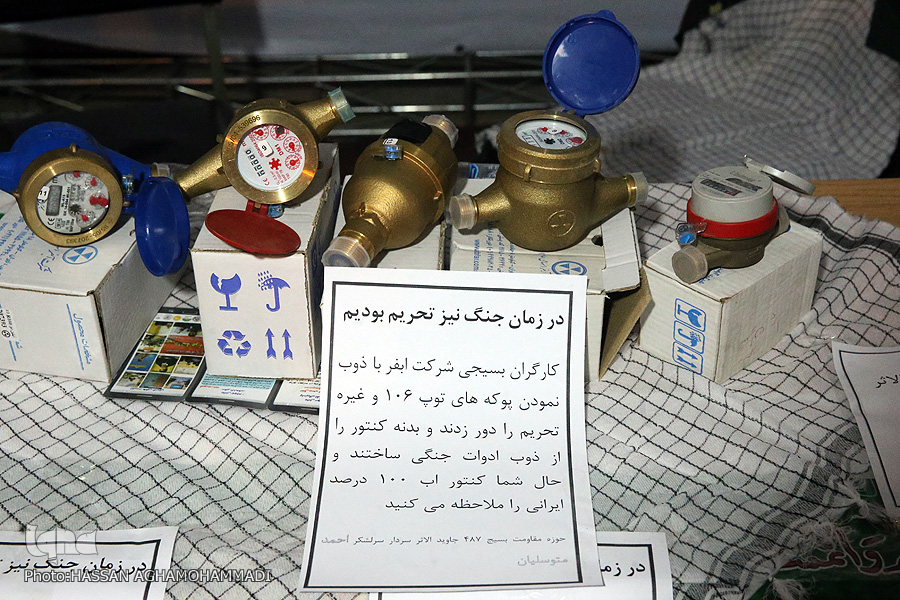 در زمان جنگ نیز تحریم بودیم
کارگران بسیجی شرکت ابفر با ذوب
نمودن پوکه های توپ ۱۰۶ و غیره
تحریم را دور زدند و بدنه کنتور را
از ذوب ادوات جنگی ساختند و
حال شما کنتور اب ۱۰۰ درصد
ایرانی را ملاحظه می کنید
حوزه مقاومت بسیج ۴۸۷ جاوید الاثر سردار سرلشکر احمد
متوسلیان
در زمان جنگ نیز
در زمان
الاثر
iqna
Photo:HASSAN AGHAMOHAMMADI